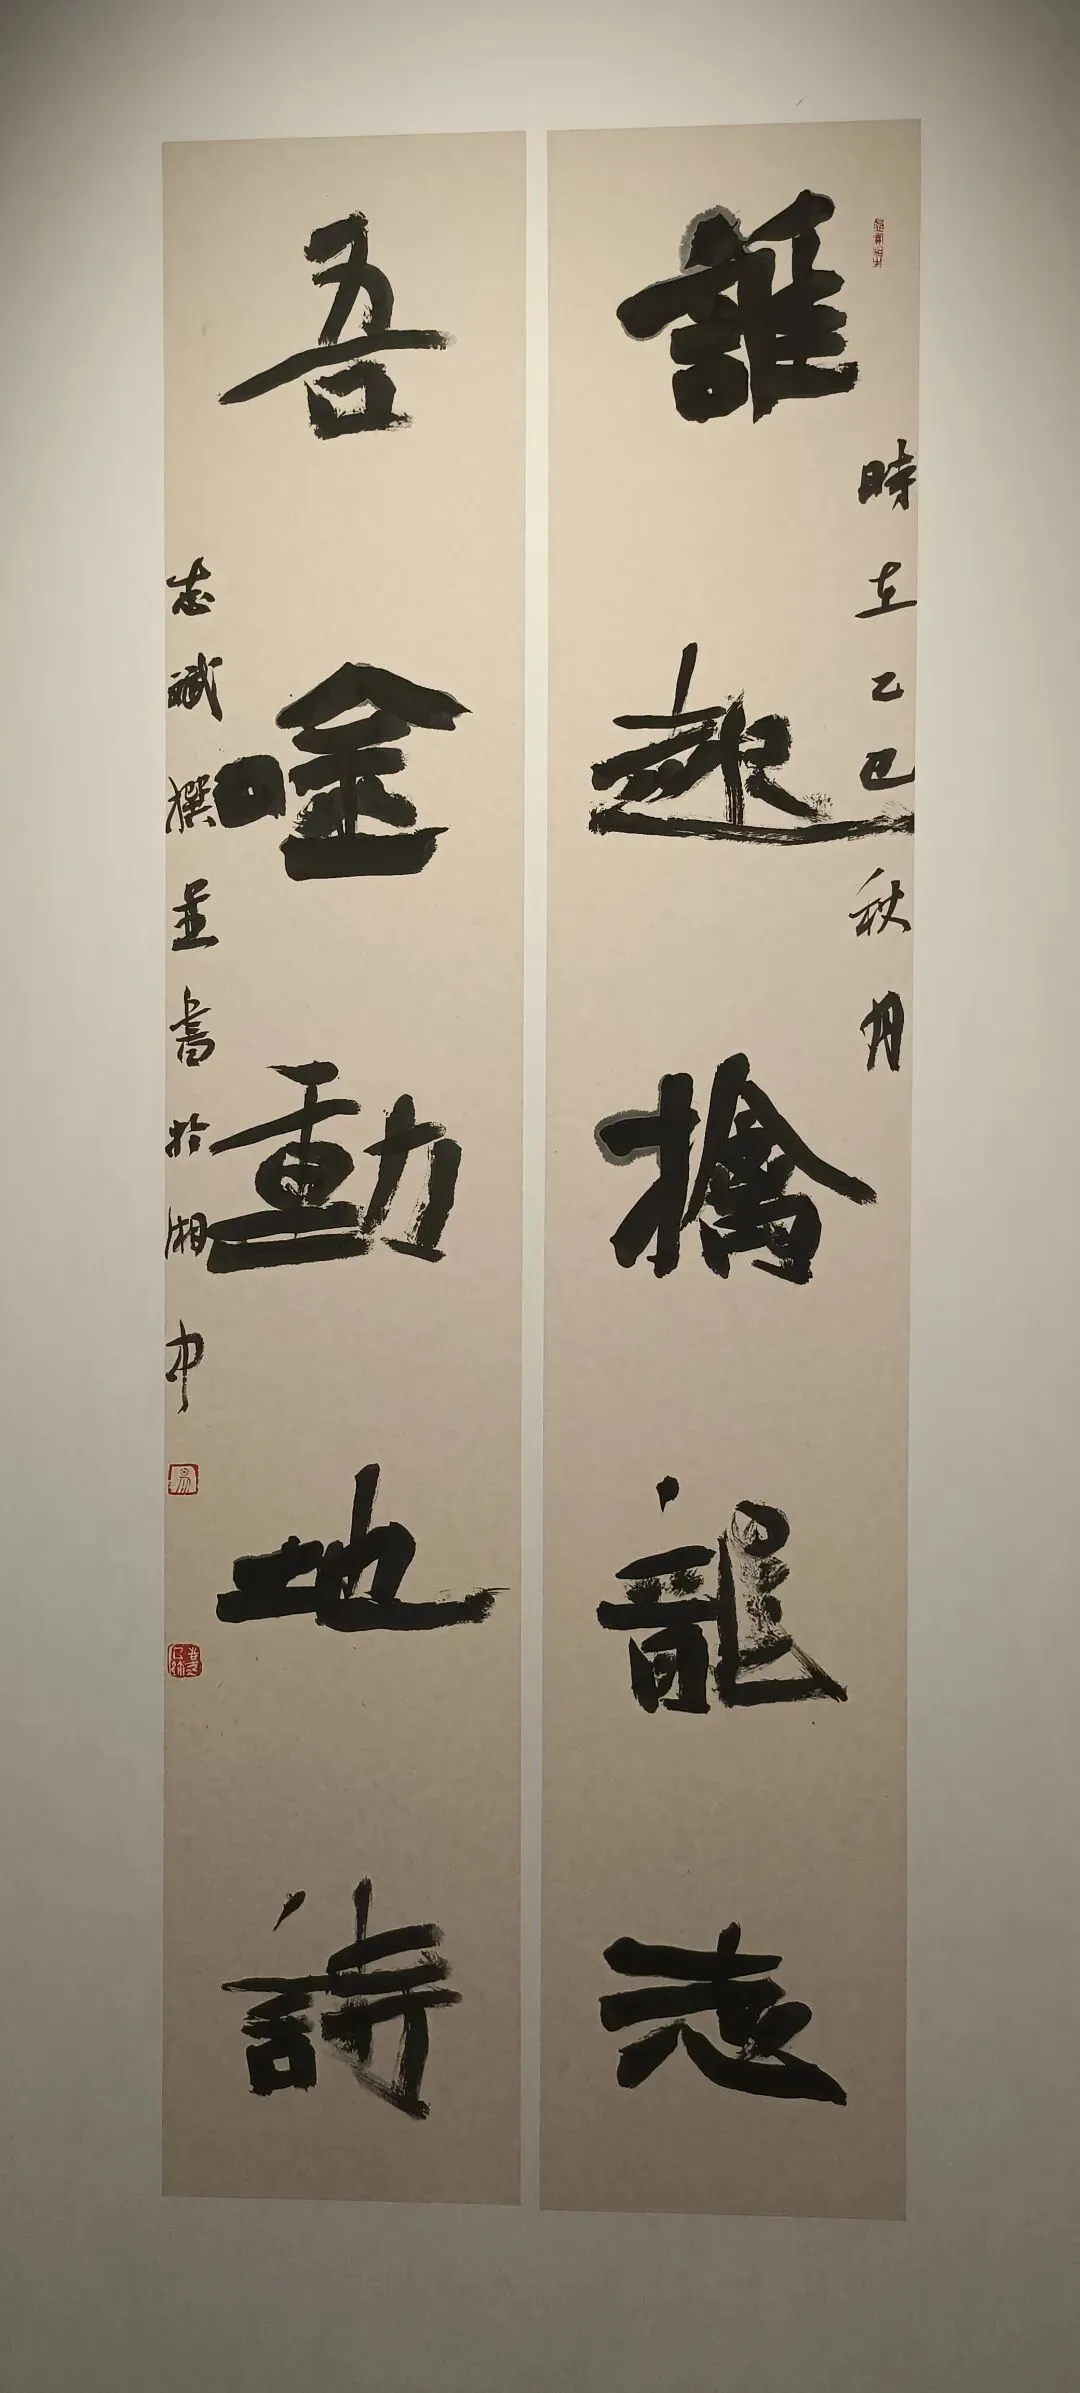 時在乙巳秋月
誰趣擒龍志
吾唫動地詩
志斌撰並書於湘中